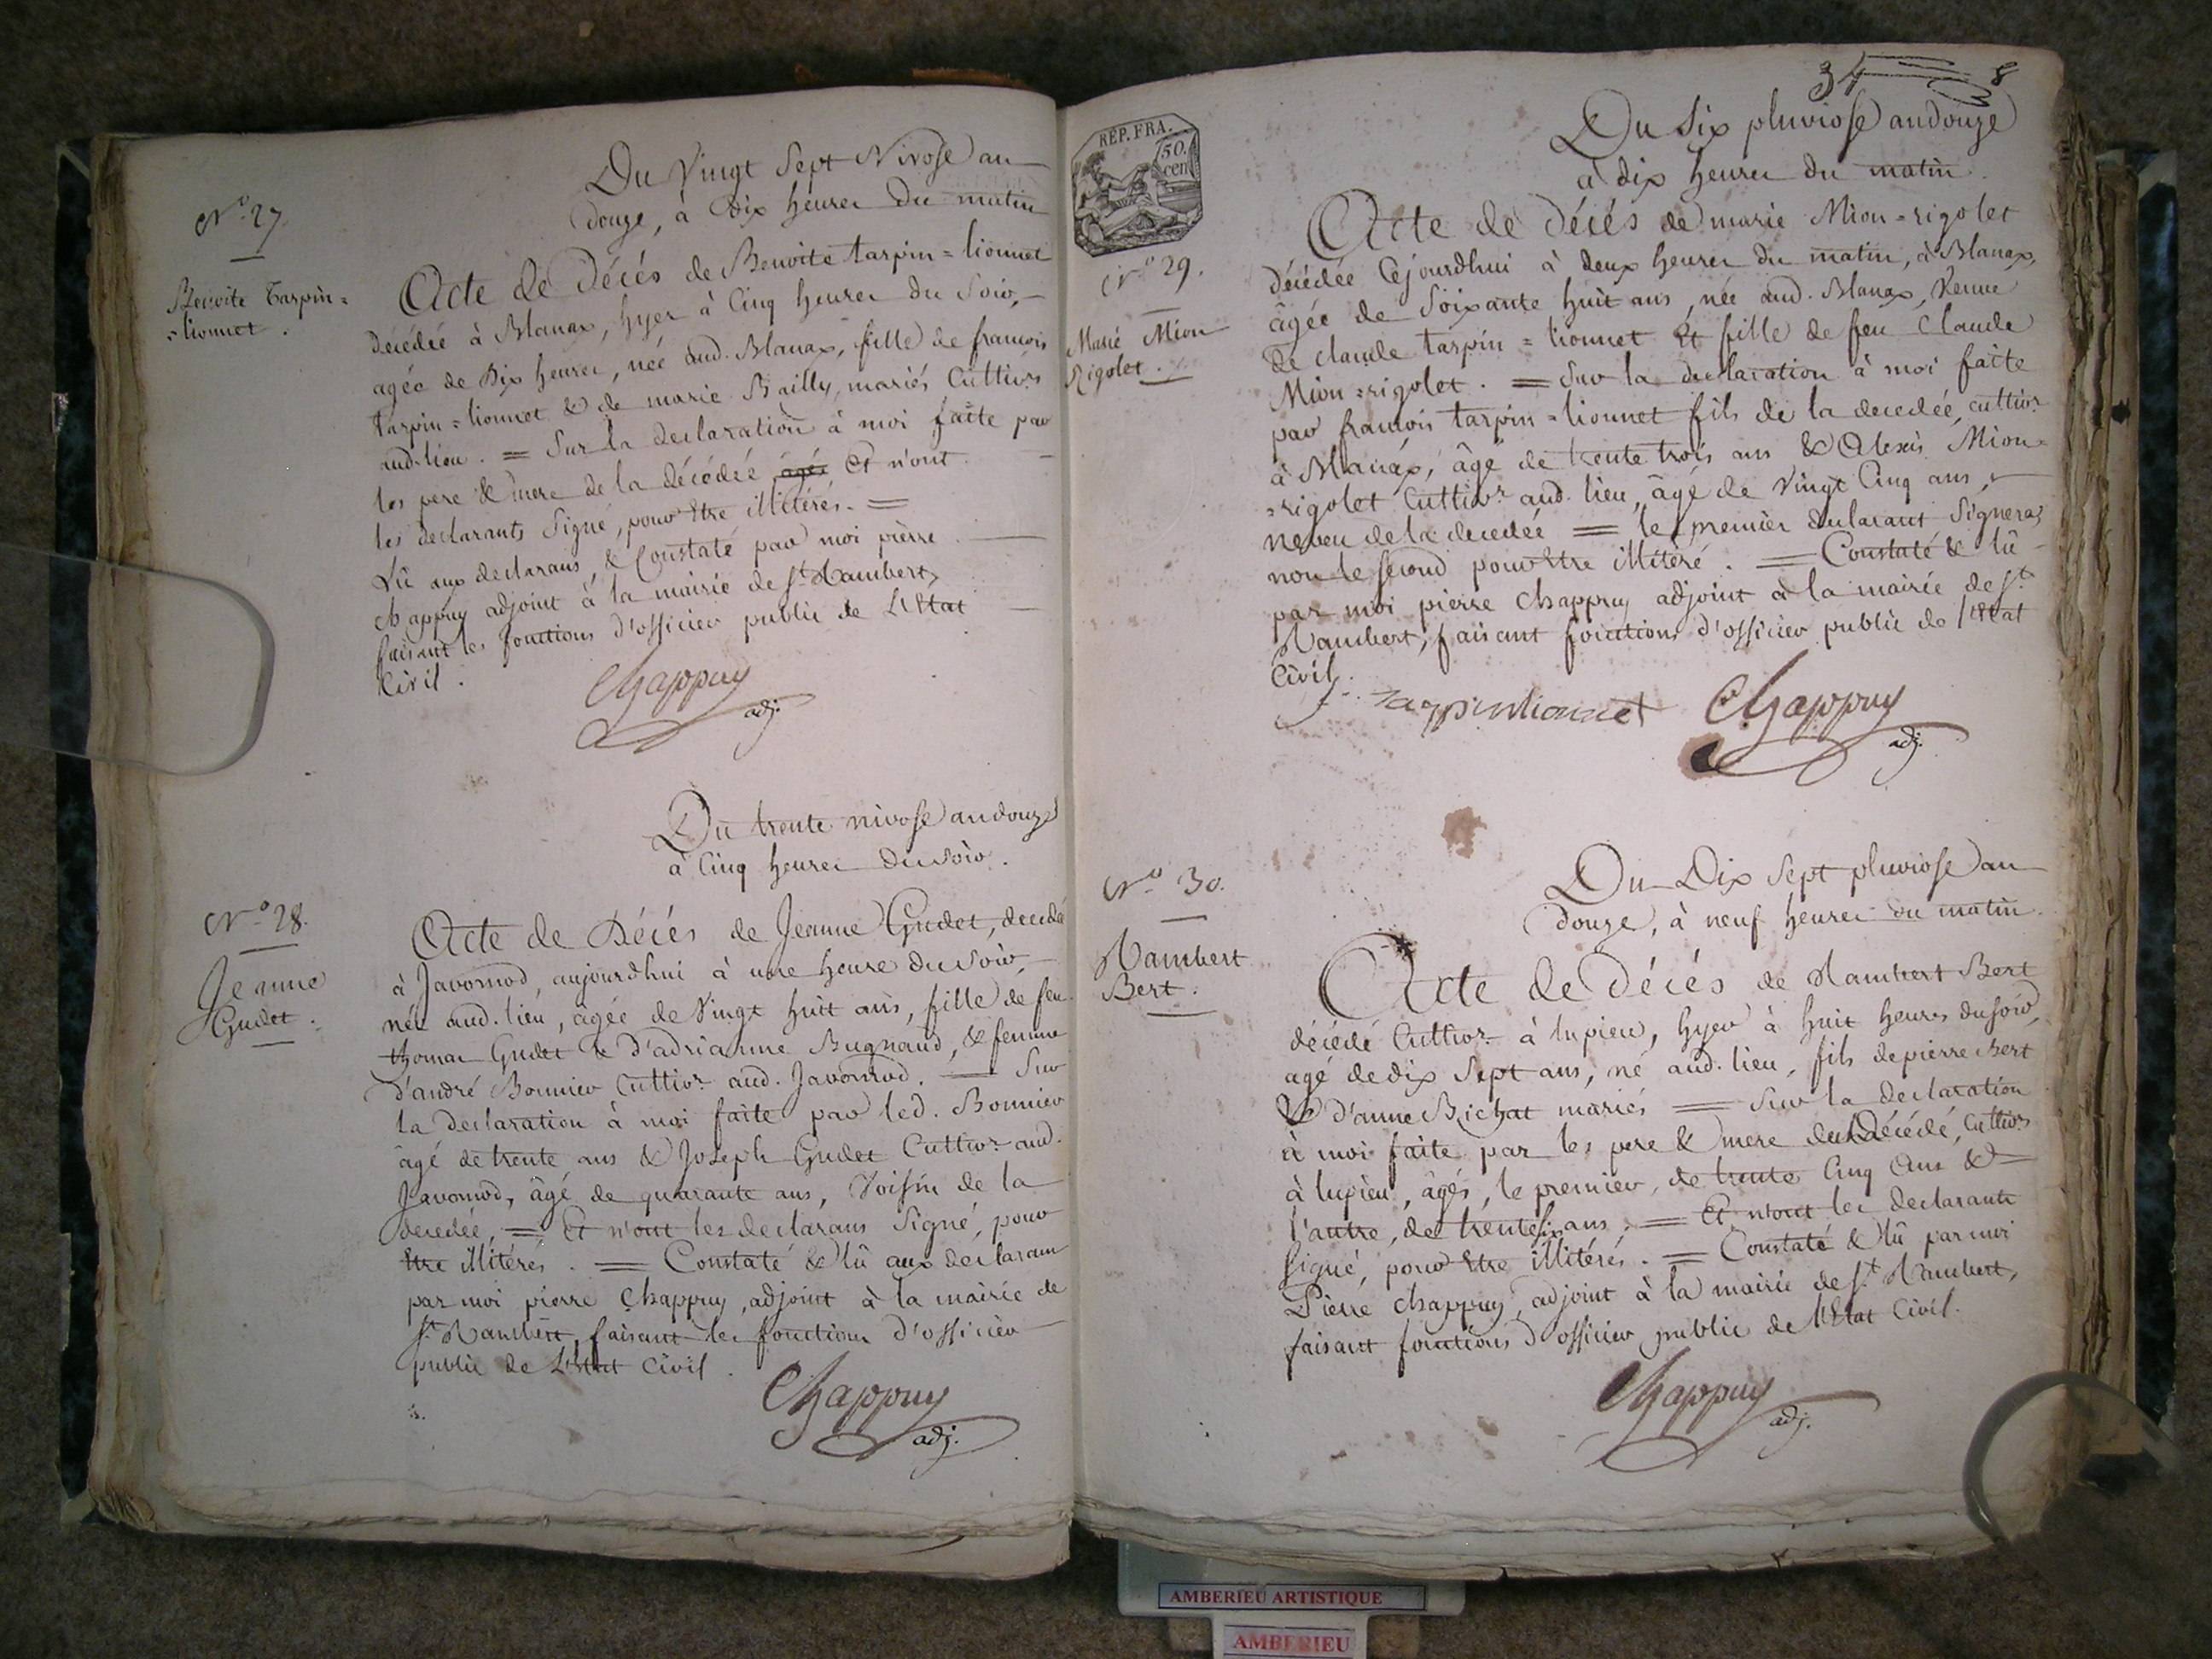 Du Vingt Sept Nivose an
douze, à dix heures du matin
N.o 27.
Benoite Tarpin =
= lionnet.
Acte de Décés de Benoite tarpin = lionnet
décédée à Blanax, hyer à Cinq heures du Soir,
agée de Dix heures, née aud. Blanax, fille de francois
tarpin = lionnet & de marie Bailly, mariés Cultivrs
aud. lieu. = Sur la declaration à moi faite par
les pere & mere de la décédée agés Et n'ont
les declarants Signé, pour Etre illitérés. =
Lû aux declarans, & Constaté par moi pierre
Chappuy adjoint à la mairie de St. Rambert,
faisant les fonctions d'officier public de L'Etat
Civil.
Chappuy
adj.
Du trente nivose an douze
à Cinq heures du soir.
N.o 28.
Jeanne
Gudet.
Acte de Décés de Jeanne Gudet, decedée
à Javornod, aujourdhui à une heure du Soir,
née aud. lieu, agée de Vingt huit ans, fille de feu
thomas Gudet & d'adrianne Bugnaud, & femme
d'andré Bonnier Cultivr. aud. Javornod. = Sur
la declaration à moi faite par led. Bonnier
âgé de trente ans & Joseph Gudet Cultivr. aud.
Javornod, âgé de quarante ans, Voisin de la
decedée, = Et n'ont les declarans Signé, pour
Etre illitérés. = Constaté & lû aux declarans
par moi pierre Chappuy, adjoint à la mairie de
St. Rambert, faisant les fonctions d'officier
public de L'Etat Civil.
Chappuy
adj.
34 8
REP. FRA.
50.
cen
Du Six pluviose an douze
à dix heures du matin.
N.o 29.
Marie Mion
Rigolet.
Acte de décés de marie Mion = rigolet
décédée Cejourdhui à deux heures du matin, à Blanax,
âgée de Soixante huit ans, née aud. Blanax, Veuve
de claude tarpin = lionnet Et fille de feu Claude
Mion = rigolet. = Sur la declaration à moi faite
par francois tarpin = lionnet fils de la decedée, cultivr.
à Blanax, âgé de trente trois ans & Alexis Mion =
= rigolet Cultivr. aud. lieu, âgé de Vingt Cinq ans,
neveu de la decedée = le premier declarant Signera,
non le second pour Etre illitéré. = Constaté & lû
par moi pierre Chappuy adjoint à la mairie de St.
Rambert, faisant fonctions d'officier public de l'Etat
Civil.
tarpin lionnet Chappuy
adj.
Du Dix Sept pluviose an
douze, à neuf heures du matin.
N.o 30.
Rambert
Bert.
Acte de Décés de Rambert Bert
décédé Cultivr. à lupieu, hyer à huit heures du soir,
agé de dix Sept ans, né aud. lieu, fils de pierre Bert
& d'anne Bichat mariés = Sur la declaration
à moi faite par les pere & mere du Décédé, Cultivrs
à lupieu, âgés, le premier, de trente Cinq Ans &
l'autre, de trente six ans, = Et n'ont les declarants
Signé, pour Etre illitérés. = Constaté & lû par moi
Pierre Chappuy, adjoint à la mairie de St. Rambert,
faisant fonctions d'officier public de l'Etat Civil.
Chappuy
adj.
AMBERIEU ARTISTIQUE
AMBERIEU